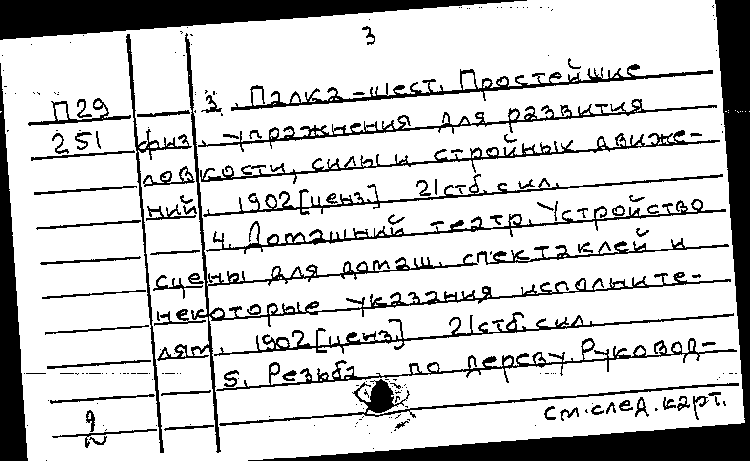 3
П29 3. Палка-шест. Простейшие
251 физ. упражнения для развития
ловкости, силы и стройных движе-
ний. 1902 [ценз.] 21 стб. с ил.
4. Домашний театр. Устройство
сцены для домаш. спектаклей и
некоторые указания исполните-
лям. 1902 [ценз.] 21 стб. с ил.
5. Резьба по дереву. Руковод-
9 см. след. карт.